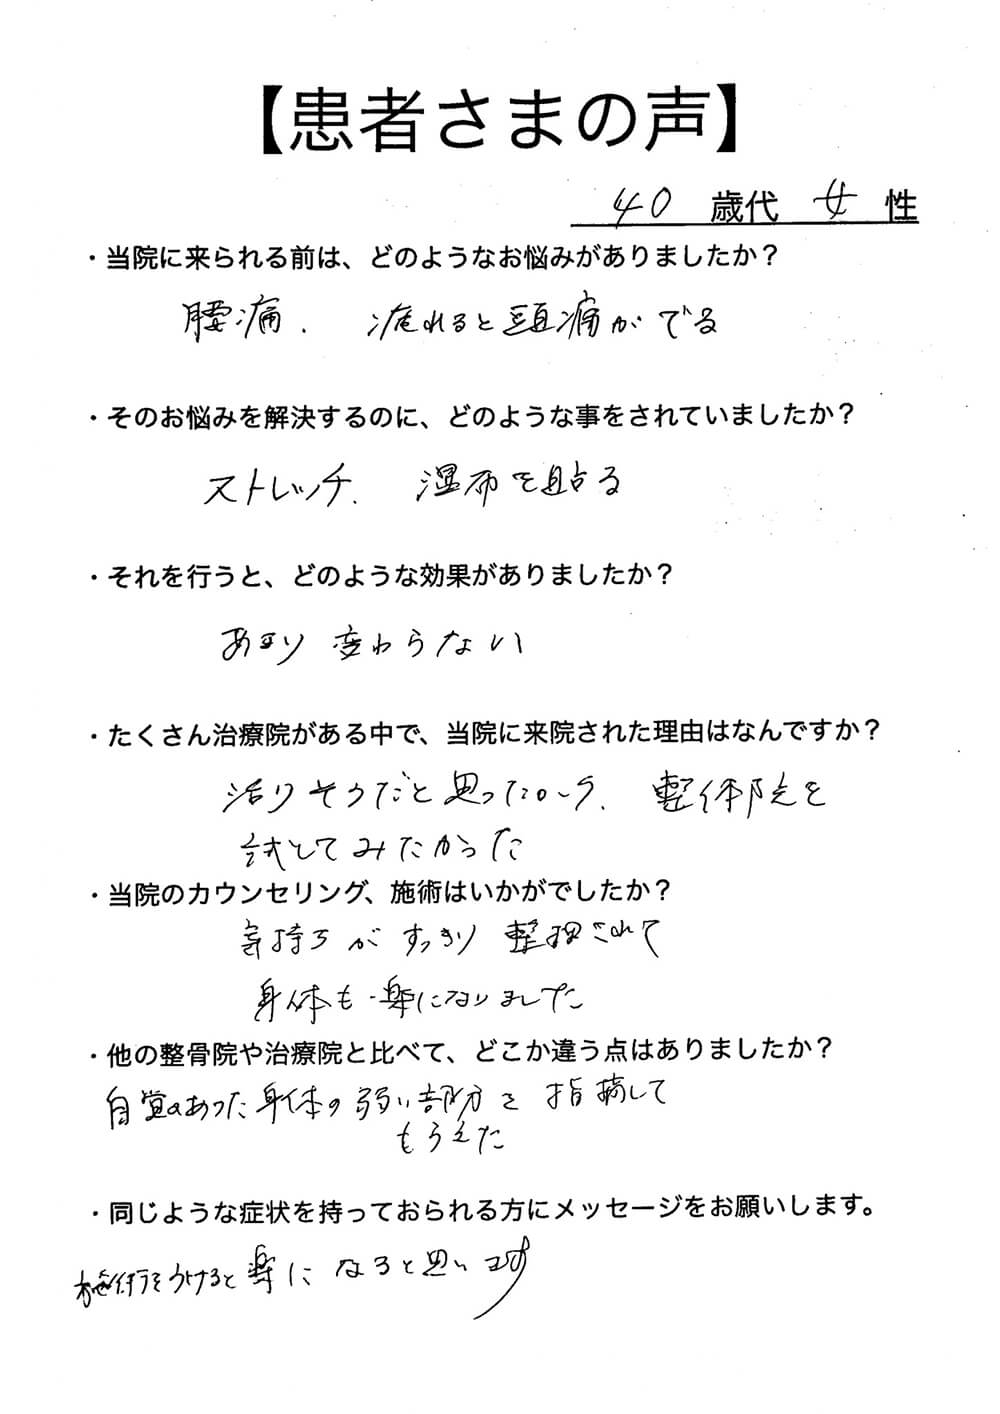 【患者さまの声】
40 歳代 女 性
・当院に来られる前は、どのようなお悩みがありましたか？
腰痛. 疲れると頭痛がでる
・そのお悩みを解決するのに、どのような事をされていましたか？
ストレッチ. 湿布を貼る
・それを行うと、どのような効果がありましたか？
あまり 変わらない
・たくさん治療院がある中で、当院に来院された理由はなんですか？
治りそうだと思ったから. 整体院を
試してみたかった
・当院のカウンセリング、施術はいかがでしたか？
気持ちが すっきり 整理されて
身体も楽になりました
・他の整骨院や治療院と比べて、どこか違う点はありましたか？
自覚のあった身体の弱い部分を 指摘して
もらえた
・同じような症状を持っておられる方にメッセージをお願いします。
施術をうけると楽に なると思います